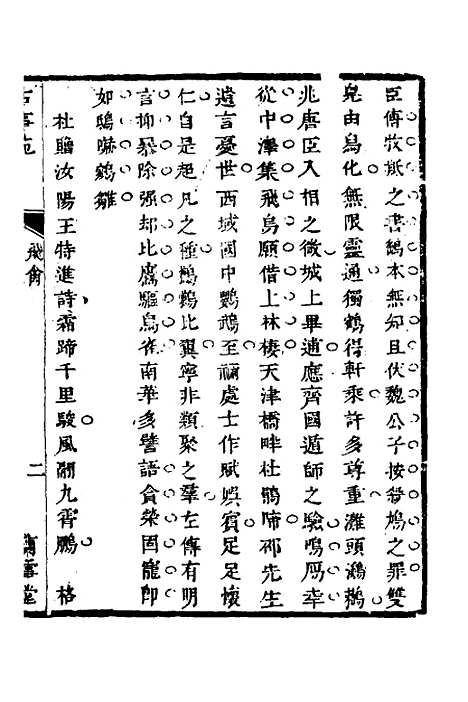 臣傳牧羝之書鷂本無知且伏魏公子按劍鳩之罪雙
鳧由烏化無限靈通獨鶴得軒乘許多尊重灘頭鸂鶒
兆唐臣入相之徵城上畢逋應齊國遁師之驗鳴雁幸
從中澤集飛鳥願借上林棲天津橋畔杜鵑啼邵先生
遺言憂世西域國中鸚鵡至禰處士作賦娛賓足足懷
仁自是超凡之種鶼鶼比翼寧非類聚之羣左傳有明
言抑暴除强却比鷹驅鳥雀南華多譬語貪榮固寵卽
如鴟嚇鵷雛
杜贈汝陽王特進詩霜蹄千里駿風翮九霄鵬 格
飛禽 二